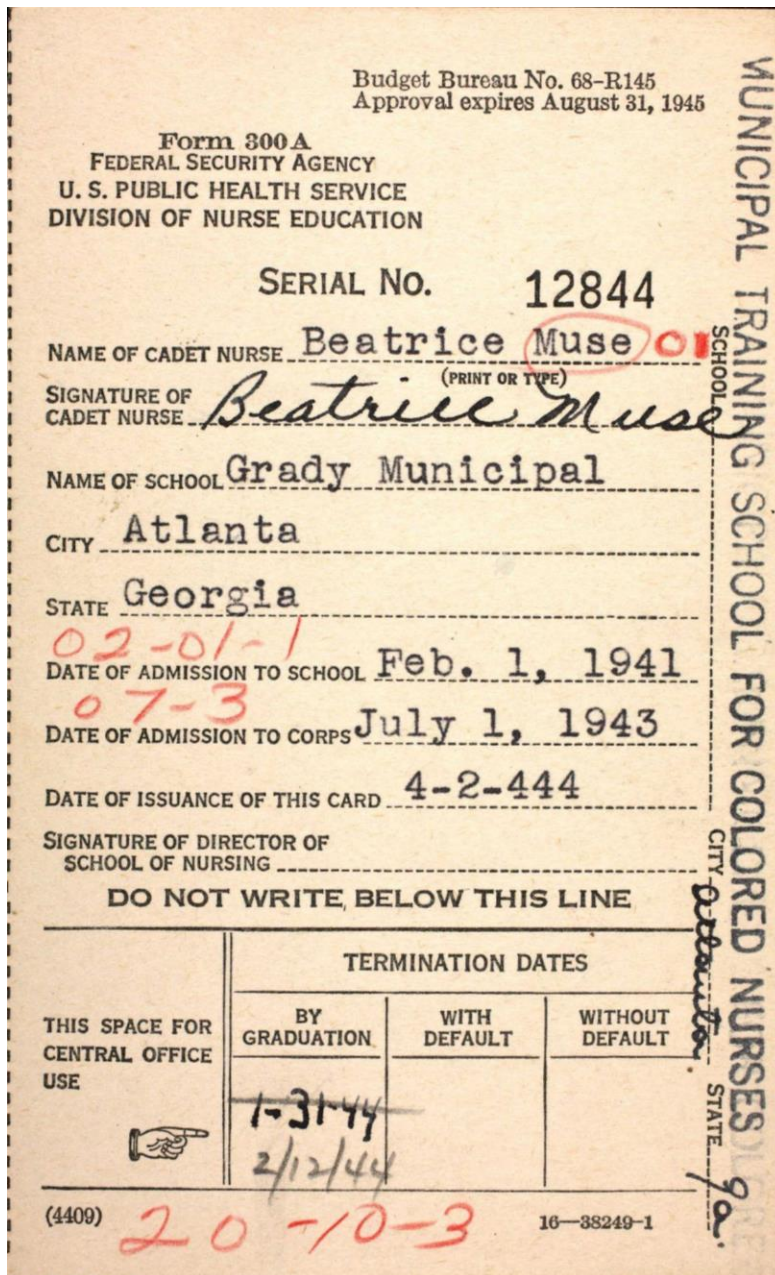 Budget Bureau No. 68-R145
Approval expires August 31, 1945
Form 300A
FEDERAL SECURITY AGENCY
U. S. PUBLIC HEALTH SERVICE
DIVISION OF NURSE EDUCATION
SERIAL NO. 12844
NAME OF CADET NURSE Beatrice Muse 01
(PRINT OR TYPE)
SIGNATURE OF
CADET NURSE Beatrice Muse
NAME OF SCHOOL Grady Municipal
CITY Atlanta
STATE Georgia
02-01-1
DATE OF ADMISSION TO SCHOOL Feb. 1, 1941
07-3
DATE OF ADMISSION TO CORPS July 1, 1943
DATE OF ISSUANCE OF THIS CARD 4-2-444
SIGNATURE OF DIRECTOR OF
SCHOOL OF NURSING
DO NOT WRITE BELOW THIS LINE
THIS SPACE FOR
CENTRAL OFFICE
USE
TERMINATION DATES
BY
GRADUATION
WITH
DEFAULT
WITHOUT
DEFAULT
1-31-44
2/12/44
(4409)
20-10-3
16—38249-1
MUNICIPAL TRAINING SCHOOL FOR COLORED NURSES
SCHOOL CITY Atlanta. STATE Ga.